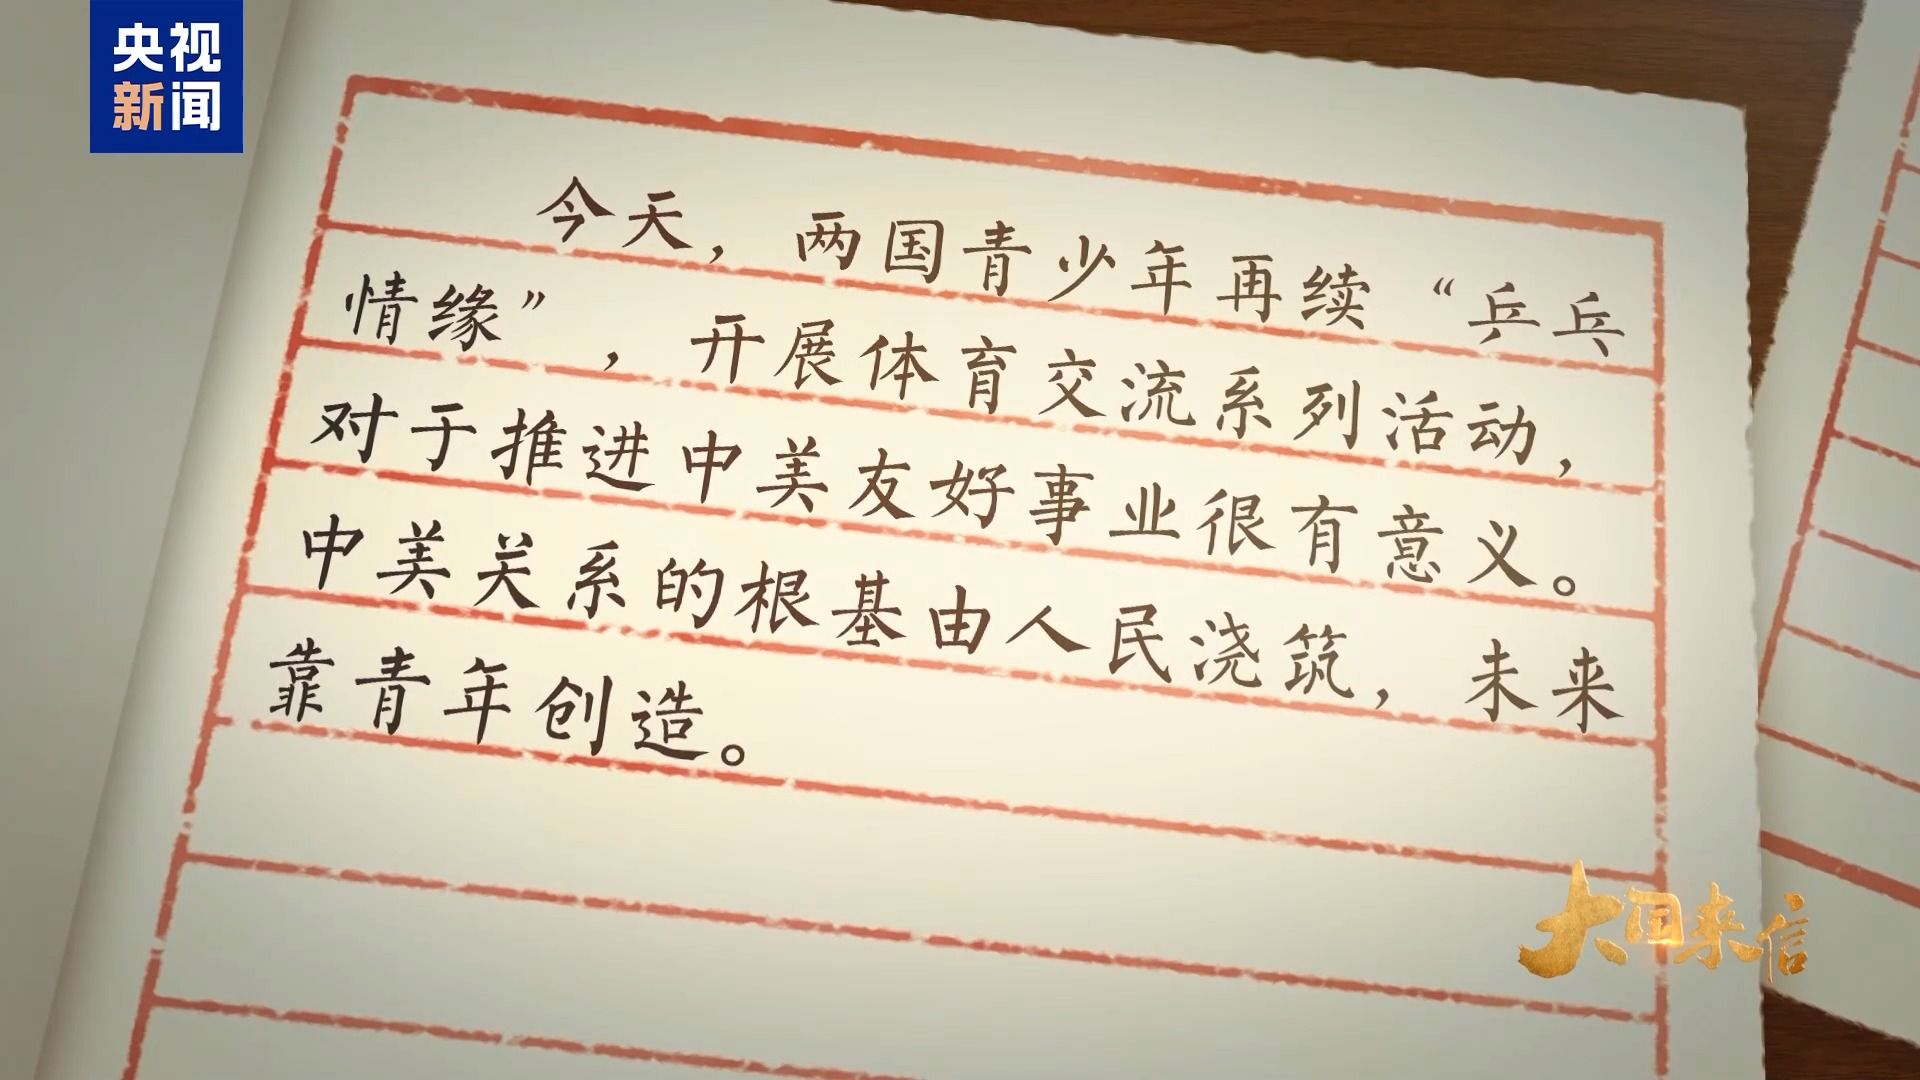 央视
新闻
今天，两国青少年再续“乒乓
情缘”，开展体育交流系列活动，
对于推进中美友好事业很有意义。
中美关系的根基由人民浇筑，未来
靠青年创造。
大国来信